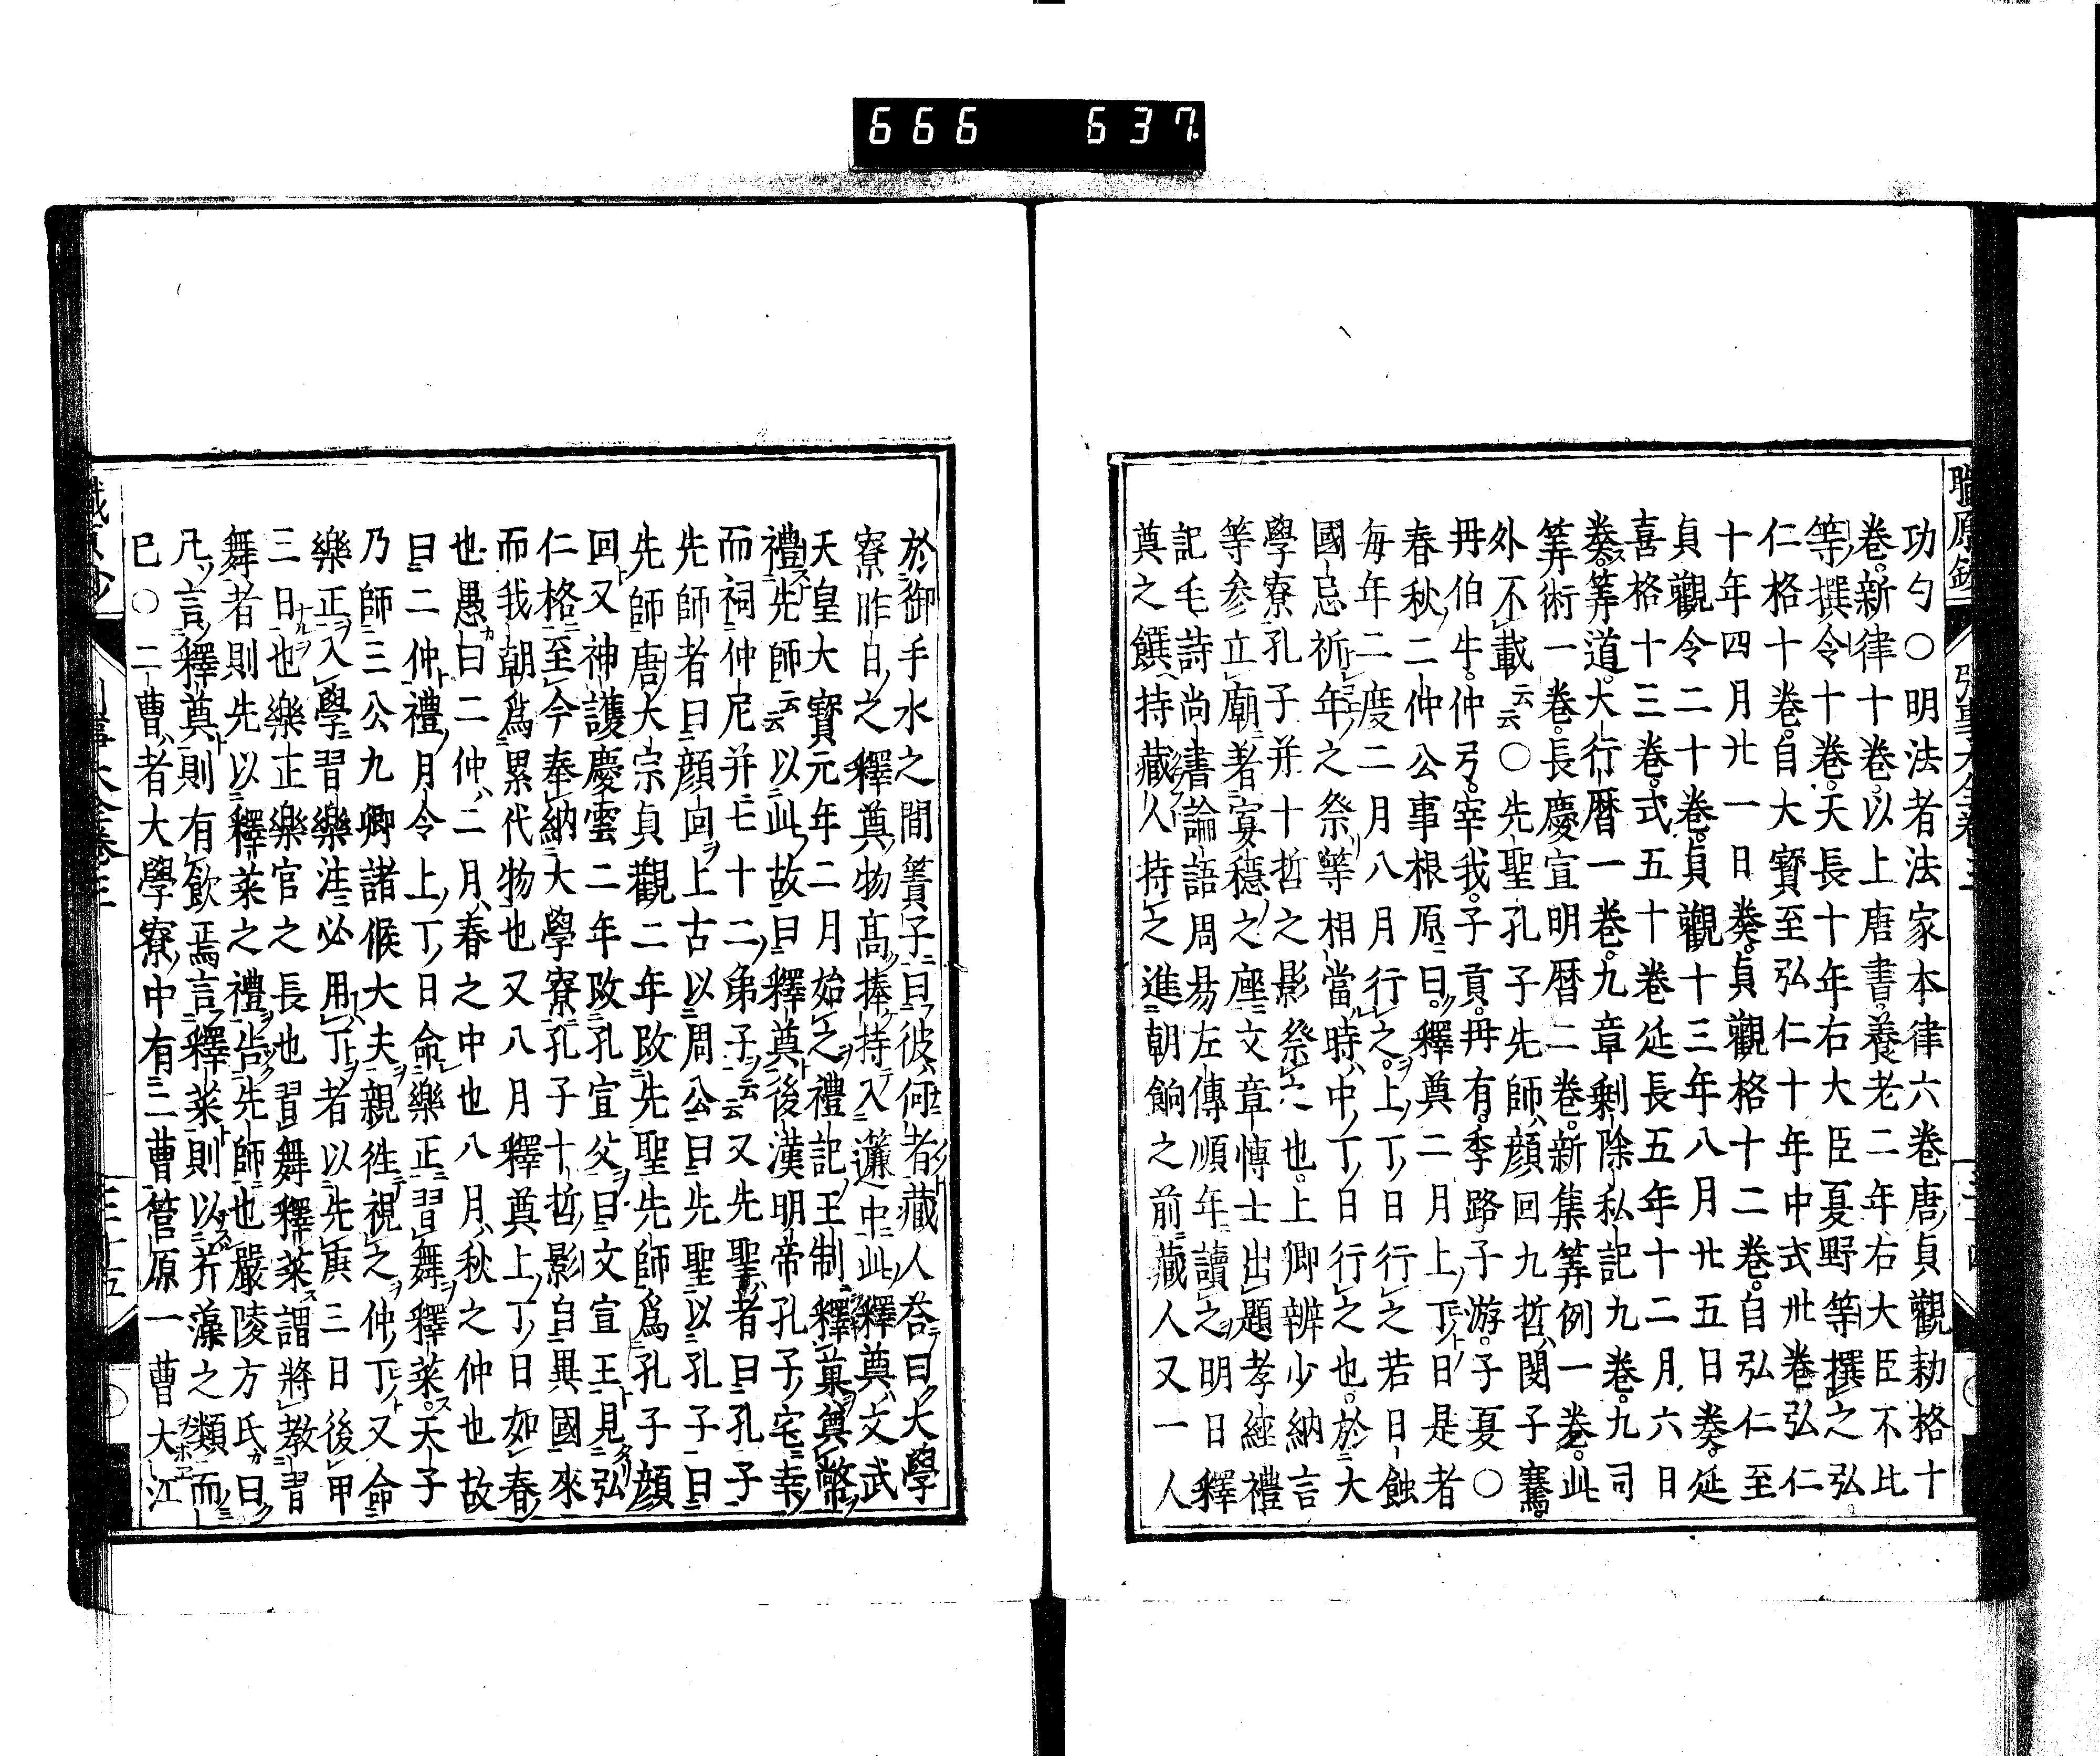 666 637
職原鈔 引事大全卷三
功勺○明法者法家本律六卷唐貞觀勅格十
卷。新律十卷。以上唐書。養老二年右大臣不比
等撰令十卷。天長十年右大臣夏野等撰之弘
仁格十卷。自大寶至弘仁十年中式卅卷弘仁
十年四月廿一日奏。貞觀格十二卷。自弘仁至
貞觀令二十卷。貞觀十三年八月廿五日奏。延
喜格十三卷。式五十卷延長五年十二月六日
奏。筭道。大行曆一卷。九章剩除私記九卷。九司
筭術一卷。長慶宣明曆二卷。新集筭例一卷。此
外不載云云○先聖孔子先師顔回九哲閔子騫。
冉伯牛。仲弓。宰我。子貢。冉有。季路。子游。子夏○
春秋二仲公事根原曰。釋奠二月上丁日是者
每年二度二月八月行之。上丁日行之若日蝕
國忌祈年之祭等相當時中丁日行之也。於大
學寮孔子并十哲之影祭也。上卿辨少納言
等参立廟者寡穩之座文章博士出題孝經禮
記毛詩尚書論語周易左傳順年讀之明日釋
奠之饌持藏人持之進朝餉之前藏人又一人
於御手水之間簀子曰彼何者藏人荅曰大學
寮昨日之釋奠物高捧持入簾中此釋奠文武
天皇大寶元年二月始之禮記王制釋菓奠幣
禮先師云云以此故曰釋奠後漢明帝孔子宅幸
而祠仲尼并七十二弟子云云又先聖者曰孔子
先師者曰顔回上古以周公曰先聖以孔子曰
先師唐大宗貞觀二年改先聖先師爲孔子顔
回又神護慶雲二年改孔宣父曰文宣王見弘
仁格至今奉納大學寮孔子十哲影自異國來
而我朝爲累代物也又八月釋奠上丁日如春
也愚曰二仲二月春之中也八月秋之仲也故
曰二仲禮月令上丁日命樂正習舞釋菜。天子
乃師三公九卿諸侯大夫親徃視之仲丁又命
樂正入學習樂注必用丁者以先庚三日後甲
三日也樂正樂官之長也習舞釋菜謂將教習
舞者則先以釋菜之禮告先師也嚴陵方氏曰
凡言釋奠則有飲焉言釋菜則以芹藻之類而
巳○二曹者大學寮中有二曹菅原一曹大江